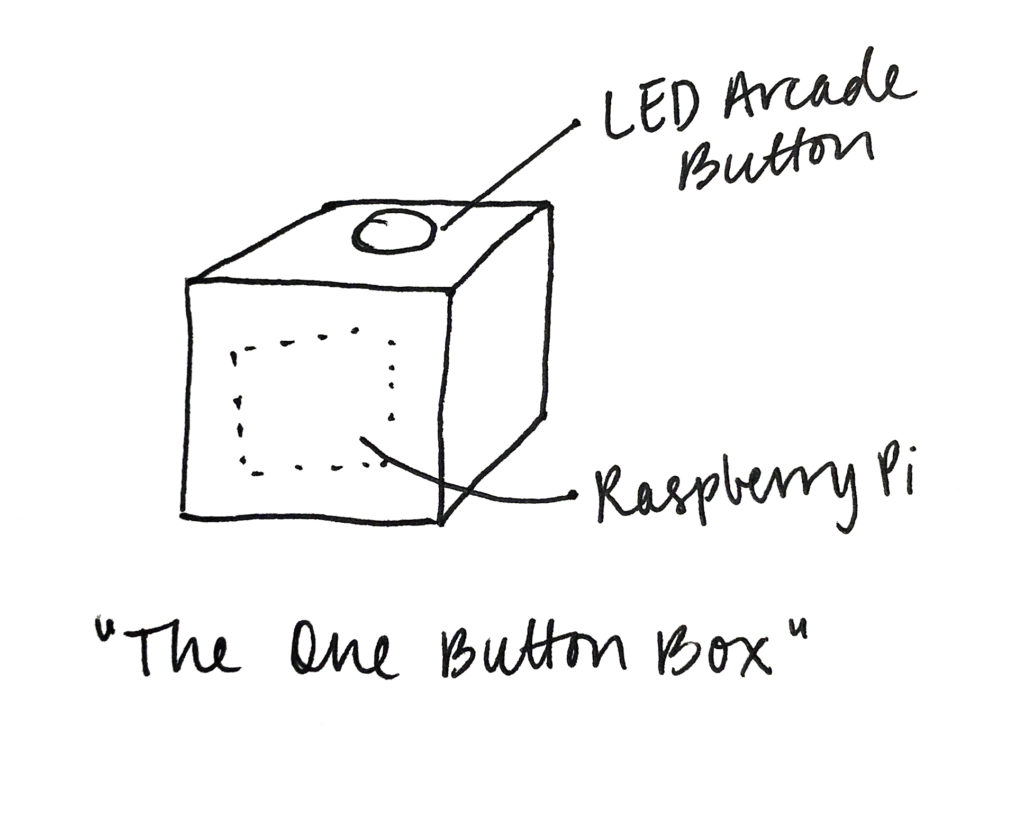 LED Arcade
Button
Raspberry Pi
"The One Button Box"